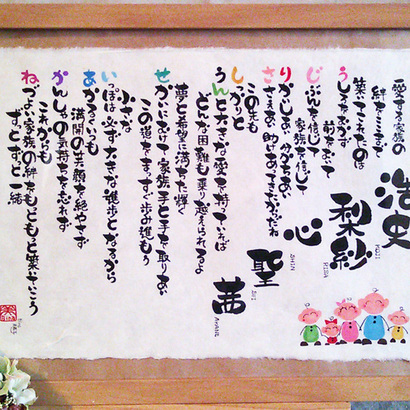 愛する家族
絆をここまで
築いてこれたのは
うしろをむかず
前をむいて
じぶんを信じて
家族を信じて
りかいしあい 分かちあい
ささえあい 助けあってきたからだね
この先も
しっかりと
うんと大きな愛を持っていれば
どんな困難も乗り越えられるよ
夢と希望に満ちた輝く
せかいにむけて家族 手と手を取りあい
この道をまっすぐ歩み進もう
小さな
いっぽは必ず大きな進歩となるから
あかるくいつも
満開の笑顔を絶やさず
かんしゃの気持ちを忘れず
これからも
ねづよい家族の絆をもっともっと築いていこう
ずっとずっと一緒
浩史
梨紗
RISA
心
SHIN
聖
SEI
茜
AKANE